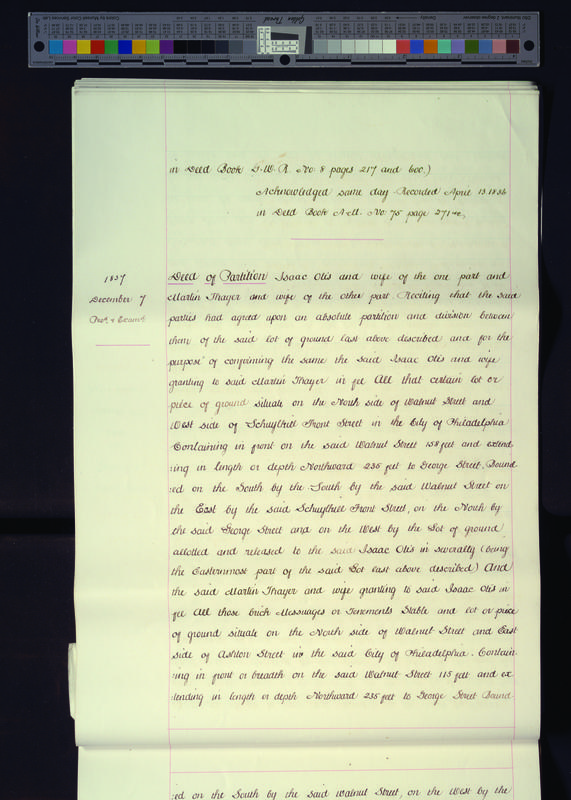 in Deed Book G.W.R. No. 8 pages 217 and 600.)
Acknowledged same day Recorded April 13 1836
in Deed Book A.M. No. 75 page 271 &c,
1837
December 7
Deed of Partition Isaac Otis and wife of the one part and
Martin Thayer and wife of the other part. Reciting that the said
parties had agreed upon an absolute partition and division between
them of the said lot of ground last above described and for the
purpose of confirming the same the said Isaac Otis and wife
granting to said Martin Thayer in fee All that certain lot or
piece of ground situate on the North side of Walnut Street and
West side of Schuylkill Front Street in the City of Philadelphia
Containing in front on the said Walnut Street 158 feet and extend
:ing in length or depth Northward 235 feet to George Street, Bound
:ed on the South by the South by the said Walnut Street on
the East by the said Schuylkill Front Street, on the North by
the said George Street and on the West by the Lot of ground
allotted and released to the said Isaac Otis in severalty (being
the Easternmost part of the said Lot last above described) And
the said Martin Thayer and wife granting to said Isaac Otis in
fee All those brick Messuages or Tenements Stable and lot or piece
of ground situate on the North side of Walnut Street and East
side of Ashton Street in the said City of Philadelphia. Contain
:ing in front or breadth on the said Walnut Street 115 feet and ex
:tending in length or depth Northward 235 feet to George Street Bound
:ed on the South by the said Walnut Street, on the West by the